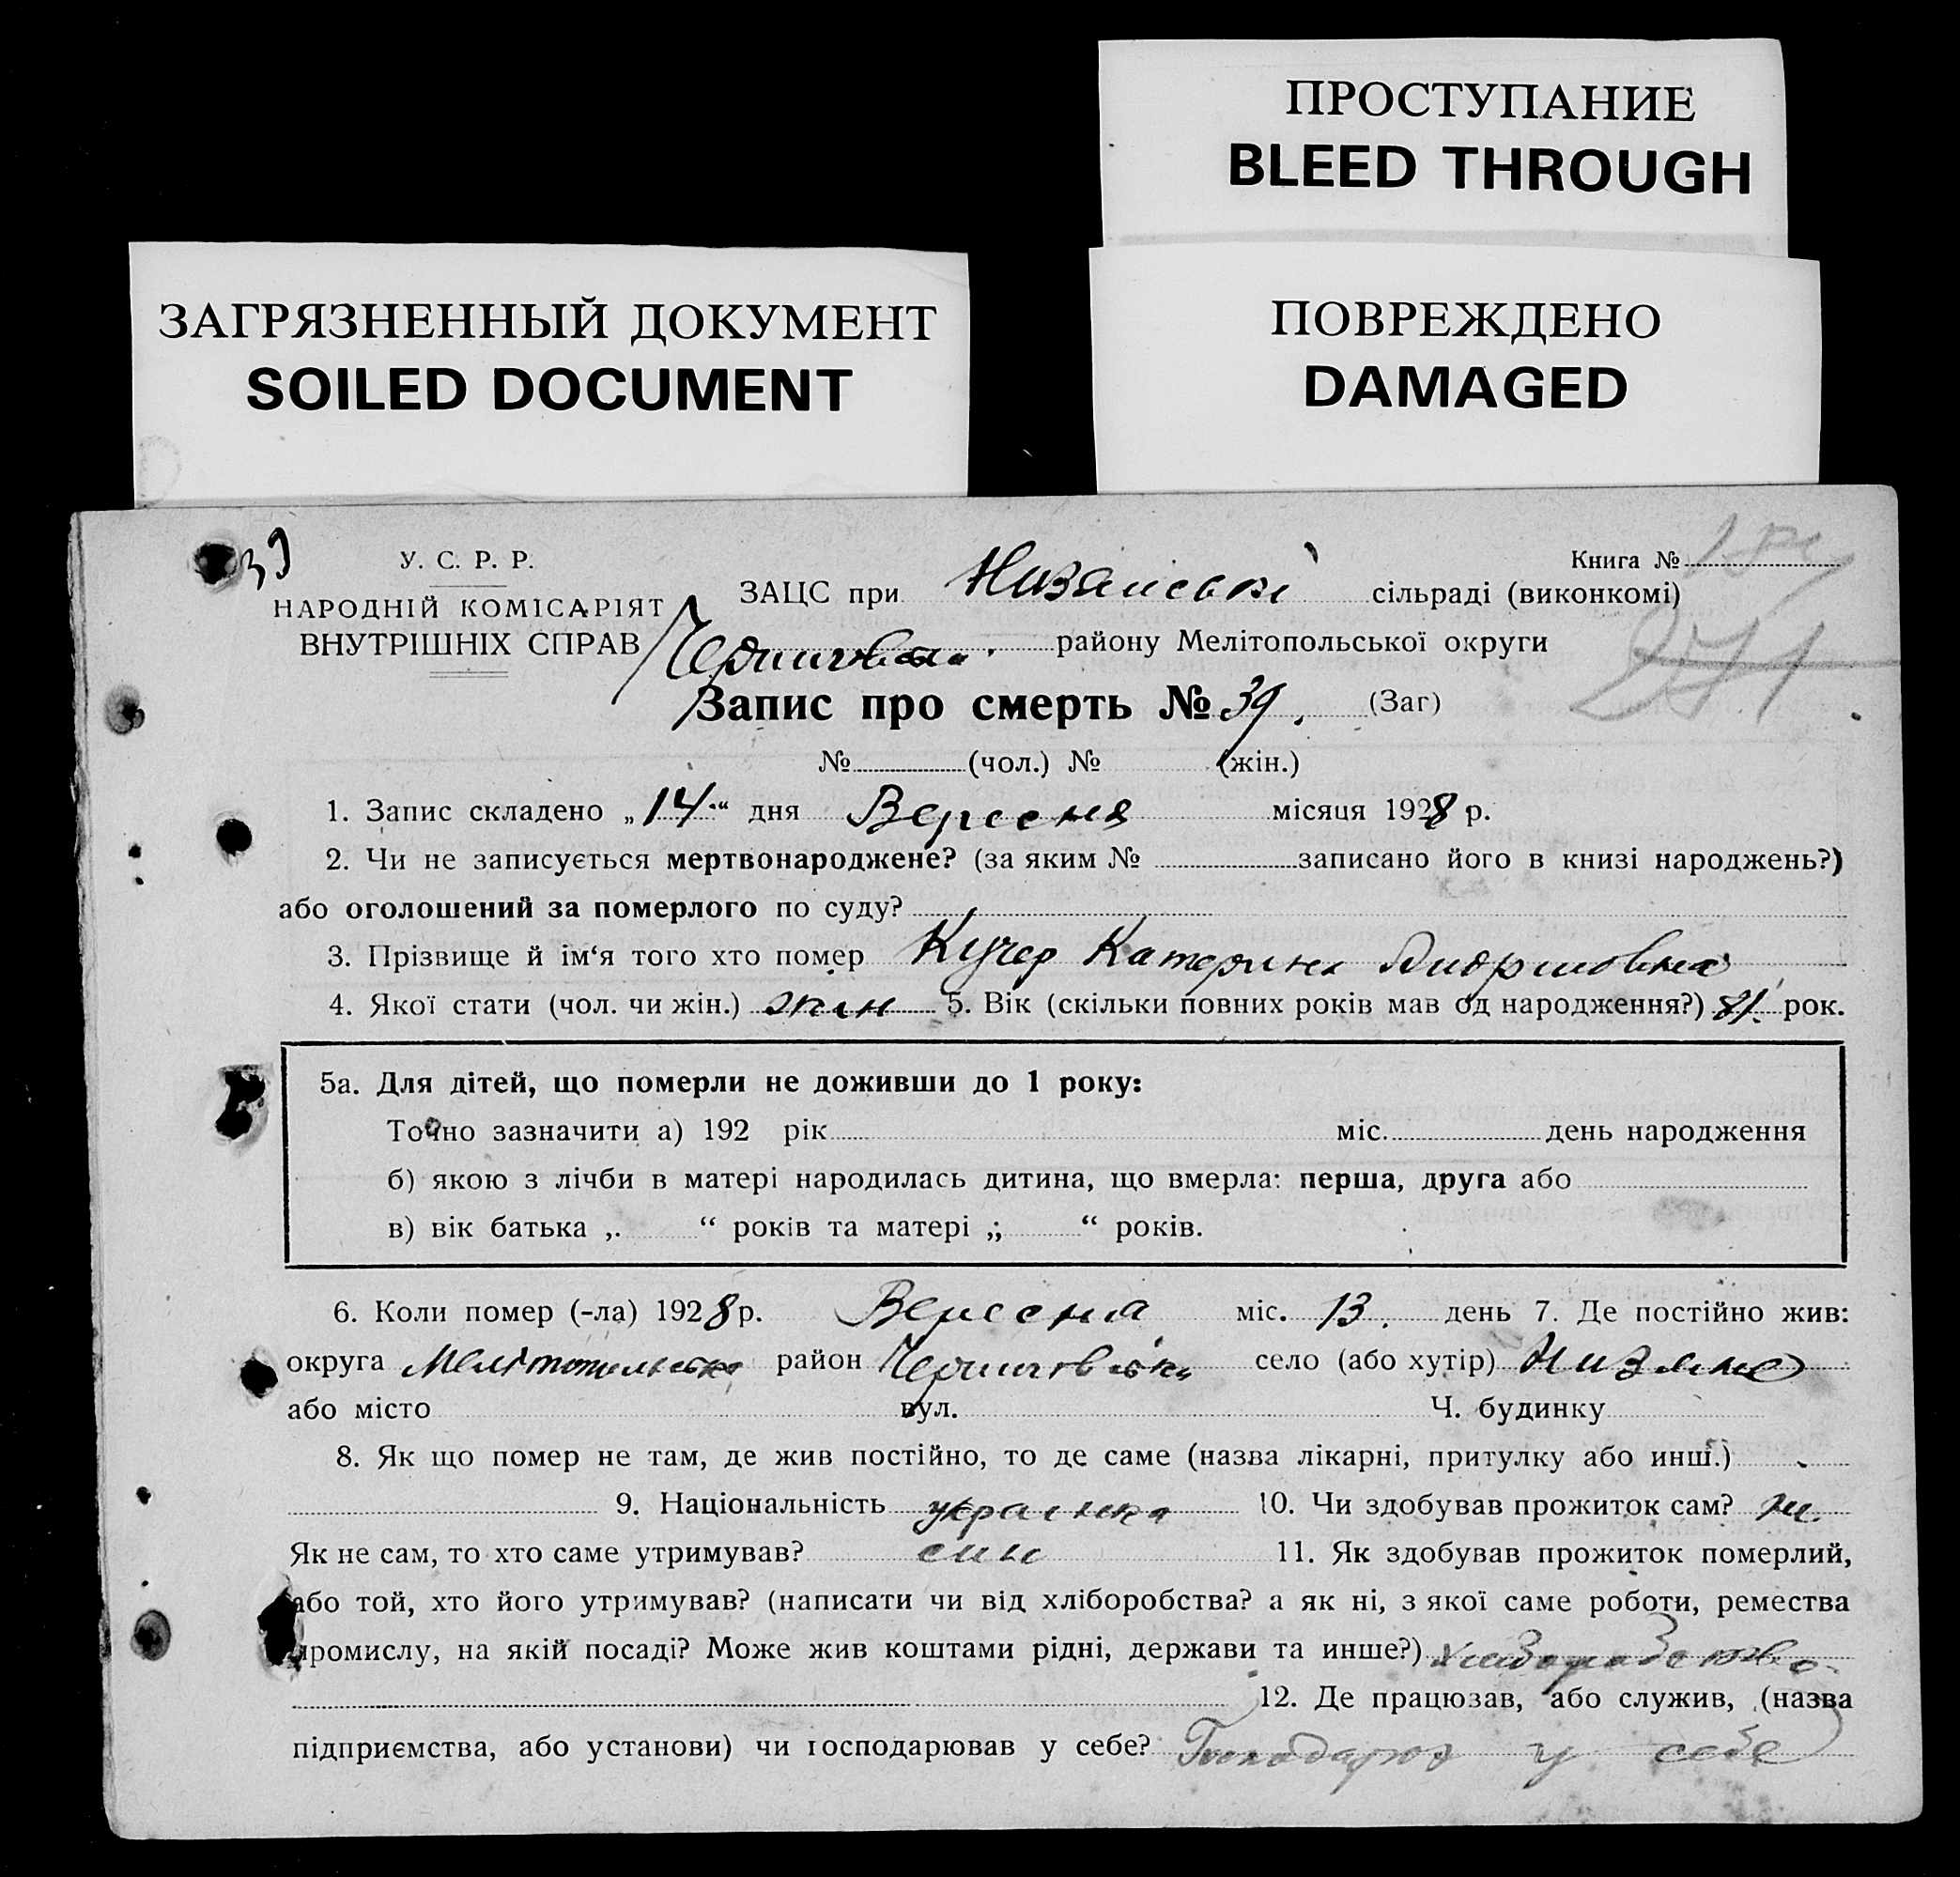 ПРОСТУПАНИЕ
BLEED THROUGH
ЗАГРЯЗНЕННЫЙ ДОКУМЕНТ
SOILED DOCUMENT
ПОВРЕЖДЕНО
DAMAGED
39
У. С. Р. Р.
НАРОДНІЙ КОМІСАРІЯТ
ВНУТРІШНІХ СПРАВ
Книга №
ЗАЦС при Низянські сільраді (виконкомі)
району Мелітопольської округи
271
Запис про смерть № 39. (Заг)
№ (чол.) № (жін.)
1. Запис складено „14“ дня Вересня місяця 1928 р.
2. Чи не записується мертвонароджене? (за яким № записано його в книзі народжень?)
або оголошений за померлого по суду?
3. Прізвище й ім‘я того хто помер Кучер Катерина Андришовна
4. Якої стати (чол. чи жін.) жин 5. Вік (скільки повних років мав од народження?) 81. рок.
5а. Для дітей, що померли не доживши до 1 року:
Точно зазначити а) 192 рік міс. день народження
б) якою з лічби в матері народилась дитина, що вмерла: перша, друга або
в) вік батька „ “ років та матері „ “ років.
6. Коли помер (-ла) 1928 р. Вересня міс. 13. день 7. Де постійно жив:
округа Мелітопільська район Чернигівськ село (або хутір) Низяне
або місто вул. Ч. будинку
8. Як що помер не там, де жив постійно, то де саме (назва лікарні, притулку або инші.)
9. Національність украінка 10. Чи здобував прожиток сам? ні.
Як не сам, то хто саме утримував? син 11. Як здобував прожиток померлий,
або той, хто його утримував? (написати чи від хліборобства? а як ні, з якої саме роботи, ремества
промислу, на якій посаді? Може жив коштами рідні, держави та инше?) хлиборобство
12. Де працював, або служив, (назва
підприємства, або установи) чи господарював у себе? Господарюв у себе